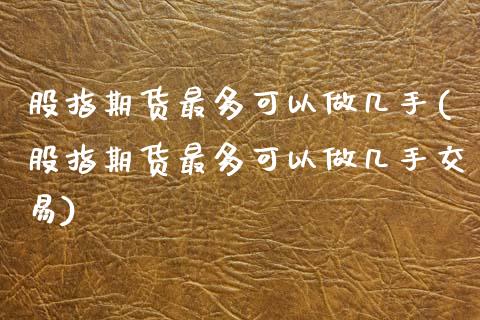 股指期货最多可以做几手(
股指期货最多可以做几手交
易)